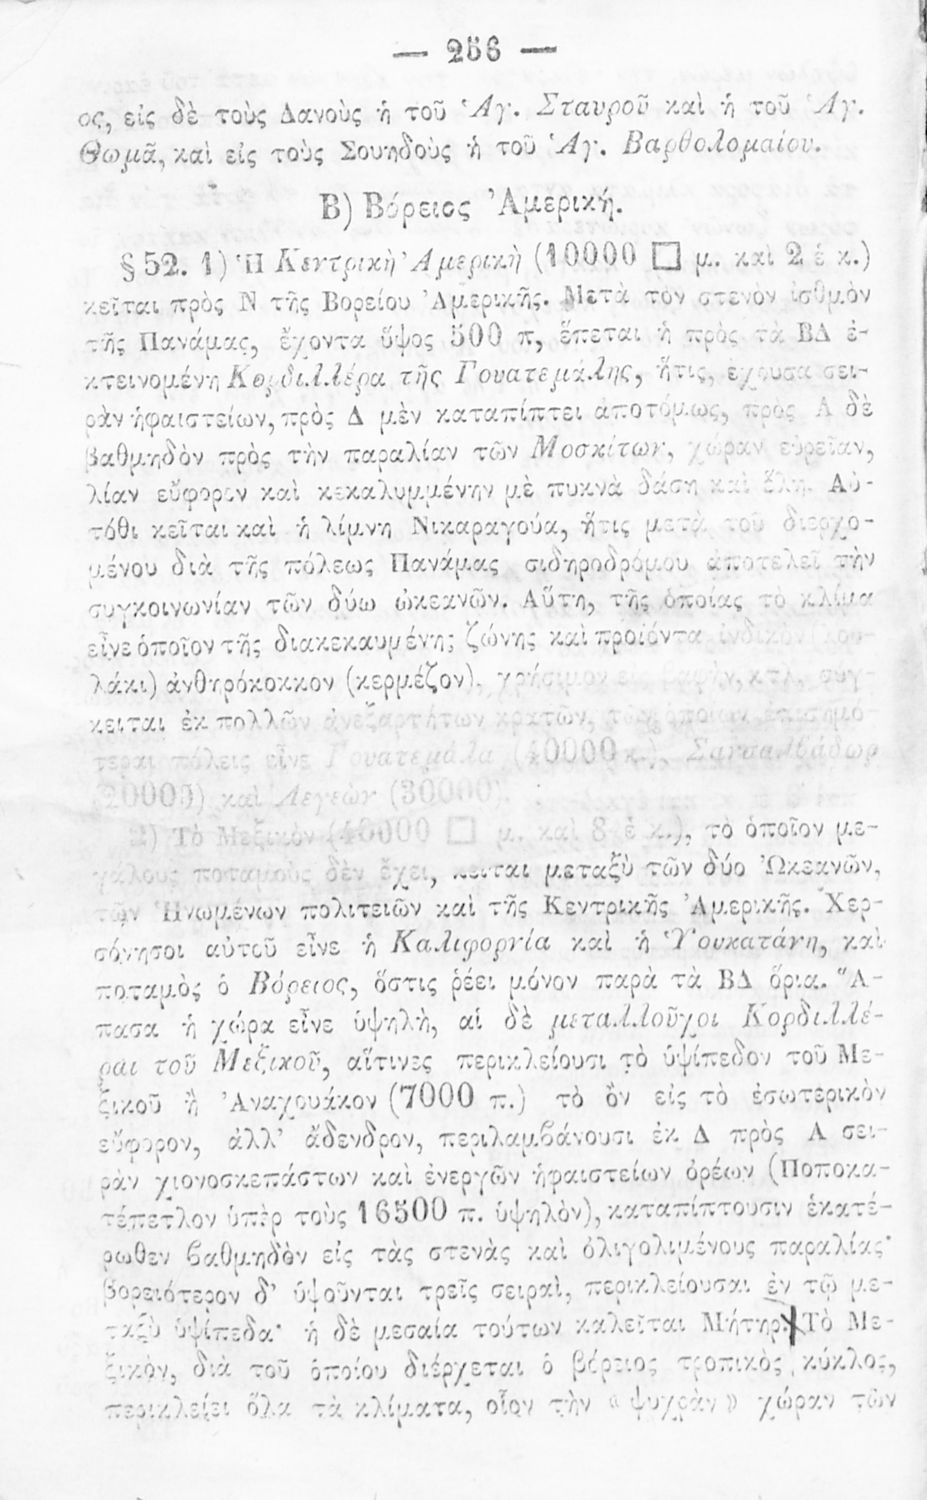 — 256 —
ος, εἰς δὲ τοὺς Δανοὺς ἡ τοῦ Ἁγ. Σταυροῦ καὶ ἡ τοῦ Ἁγ.
Θωμᾶ, καὶ εἰς τοὺς Σουηδοὺς ἡ τοῦ Ἁγ. Βαρθολομαίου.
Β) Βόρειος Ἀμερική.
§ 52. 1) Ἡ Κεντρικὴ Ἀμερικὴ (10000 □ μ. καὶ 2 ἑ κ.)
κεῖται πρὸς Ν τῆς Βορείου Ἀμερικῆς. Μετὰ τὸν στενὸν ἰσθμὸν
τῆς Πανάμας, ἔχοντα ὕψος 500 π, ἕπεται ἡ πρὸς τὰ ΒΔ ἐ-
κτεινομένη Κορδιλλέρα τῆς Γουατεμάλης, ἥτις, ἔχουσα σει-
ρὰν ἡφαιστείων, πρὸς Δ μὲν καταπίπτει ἀποτόμως, πρὸς Α δὲ
βαθμηδὸν πρὸς τὴν παραλίαν τῶν Μοσκίτων, χώραν εὐρεῖαν,
λίαν εὔφορον καὶ κεκαλυμμένην μὲ πυκνὰ δάση καὶ ἕλη. Αὐ-
τόθι κεῖται καὶ ἡ λίμνη Νικαραγούα, ἥτις μετὰ τοῦ διερχο-
μένου διὰ τῆς πόλεως Πανάμας σιδηροδρόμου ἀποτελεῖ τὴν
συγκοινωνίαν τῶν δύω ὠκεανῶν. Αὕτη, τῆς ὁποίας τὸ κλῖμα
εἶνε ὁποῖον τῆς διακεκαυμένης ζώνης καὶ προϊόντα ἰνδικὸν (λου-
λάκι) ἀνθηρόκοκκον (κερμέζον), χρήσιμον εἰς βαφὴν, κτλ. σύγ-
κειται ἐκ πολλῶν ἀνεξαρτήτων κρατῶν, τῶν ὁποίων ἐπισημό-
τεραι πόλεις εἶνε Γουατεμάλα (40000 κ.), Σανσαλβάδωρ
(20000) καὶ Λεγεὼν (30000).
2) Τὸ Μεξικὸν (40000 □ μ. καὶ 8 ἑ κ.), τὸ ὁποῖον με-
γάλους ποταμοὺς δὲν ἔχει, κεῖται μεταξὺ τῶν δύο Ὠκεανῶν,
τῶν Ἡνωμένων πολιτειῶν καὶ τῆς Κεντρικῆς Ἀμερικῆς. Χερ-
σόνησοι αὐτοῦ εἶνε ἡ Καλιφορνία καὶ ἡ Ὑουκατάνη, καὶ
ποταμὸς ὁ Βόρειος, ὅστις ῥέει μόνον παρὰ τὰ ΒΔ ὅρια. Ἅ-
πασα ἡ χώρα εἶνε ὑψηλὴ, αἱ δὲ μεταλλοῦχοι Κορδιλλέ-
ραι τοῦ Μεξικοῦ, αἵτινες περικλείουσι τὸ ὑψίπεδον τοῦ Με-
ξικοῦ ἢ Ἀναχουάκον (7000 π.) τὸ ὂν εἰς τὸ ἐσωτερικὸν
εὔφορον, ἀλλ' ἄδενδρον, περιλαμβάνουσι ἐκ Δ πρὸς Α σει-
ρὰν χιονοσκεπάστων καὶ ἐνεργῶν ἡφαιστείων ὀρέων (Ποποκα-
τέπετλον ὑπὲρ τοὺς 16500 π. ὑψηλὸν), καταπίπτουσιν ἑκατέ-
ρωθεν βαθμηδὸν εἰς τὰς στενὰς καὶ ὀλιγολιμένους παραλίας·
βορειότερον δ' ὑψοῦνται τρεῖς σειραὶ, περικλείουσαι ἐν τῷ με-
ταξὺ ὑψίπεδα· ἡ δὲ μεσαία τούτων καλεῖται Μήτηρ. Τὸ Με-
ξικὸν, διὰ τοῦ ὁποίου διέρχεται ὁ βόρειος τροπικὸς κύκλος,
περικλείει ὅλα τὰ κλίματα, οἷον τὴν «ψυχρὰν» χώραν τῶν